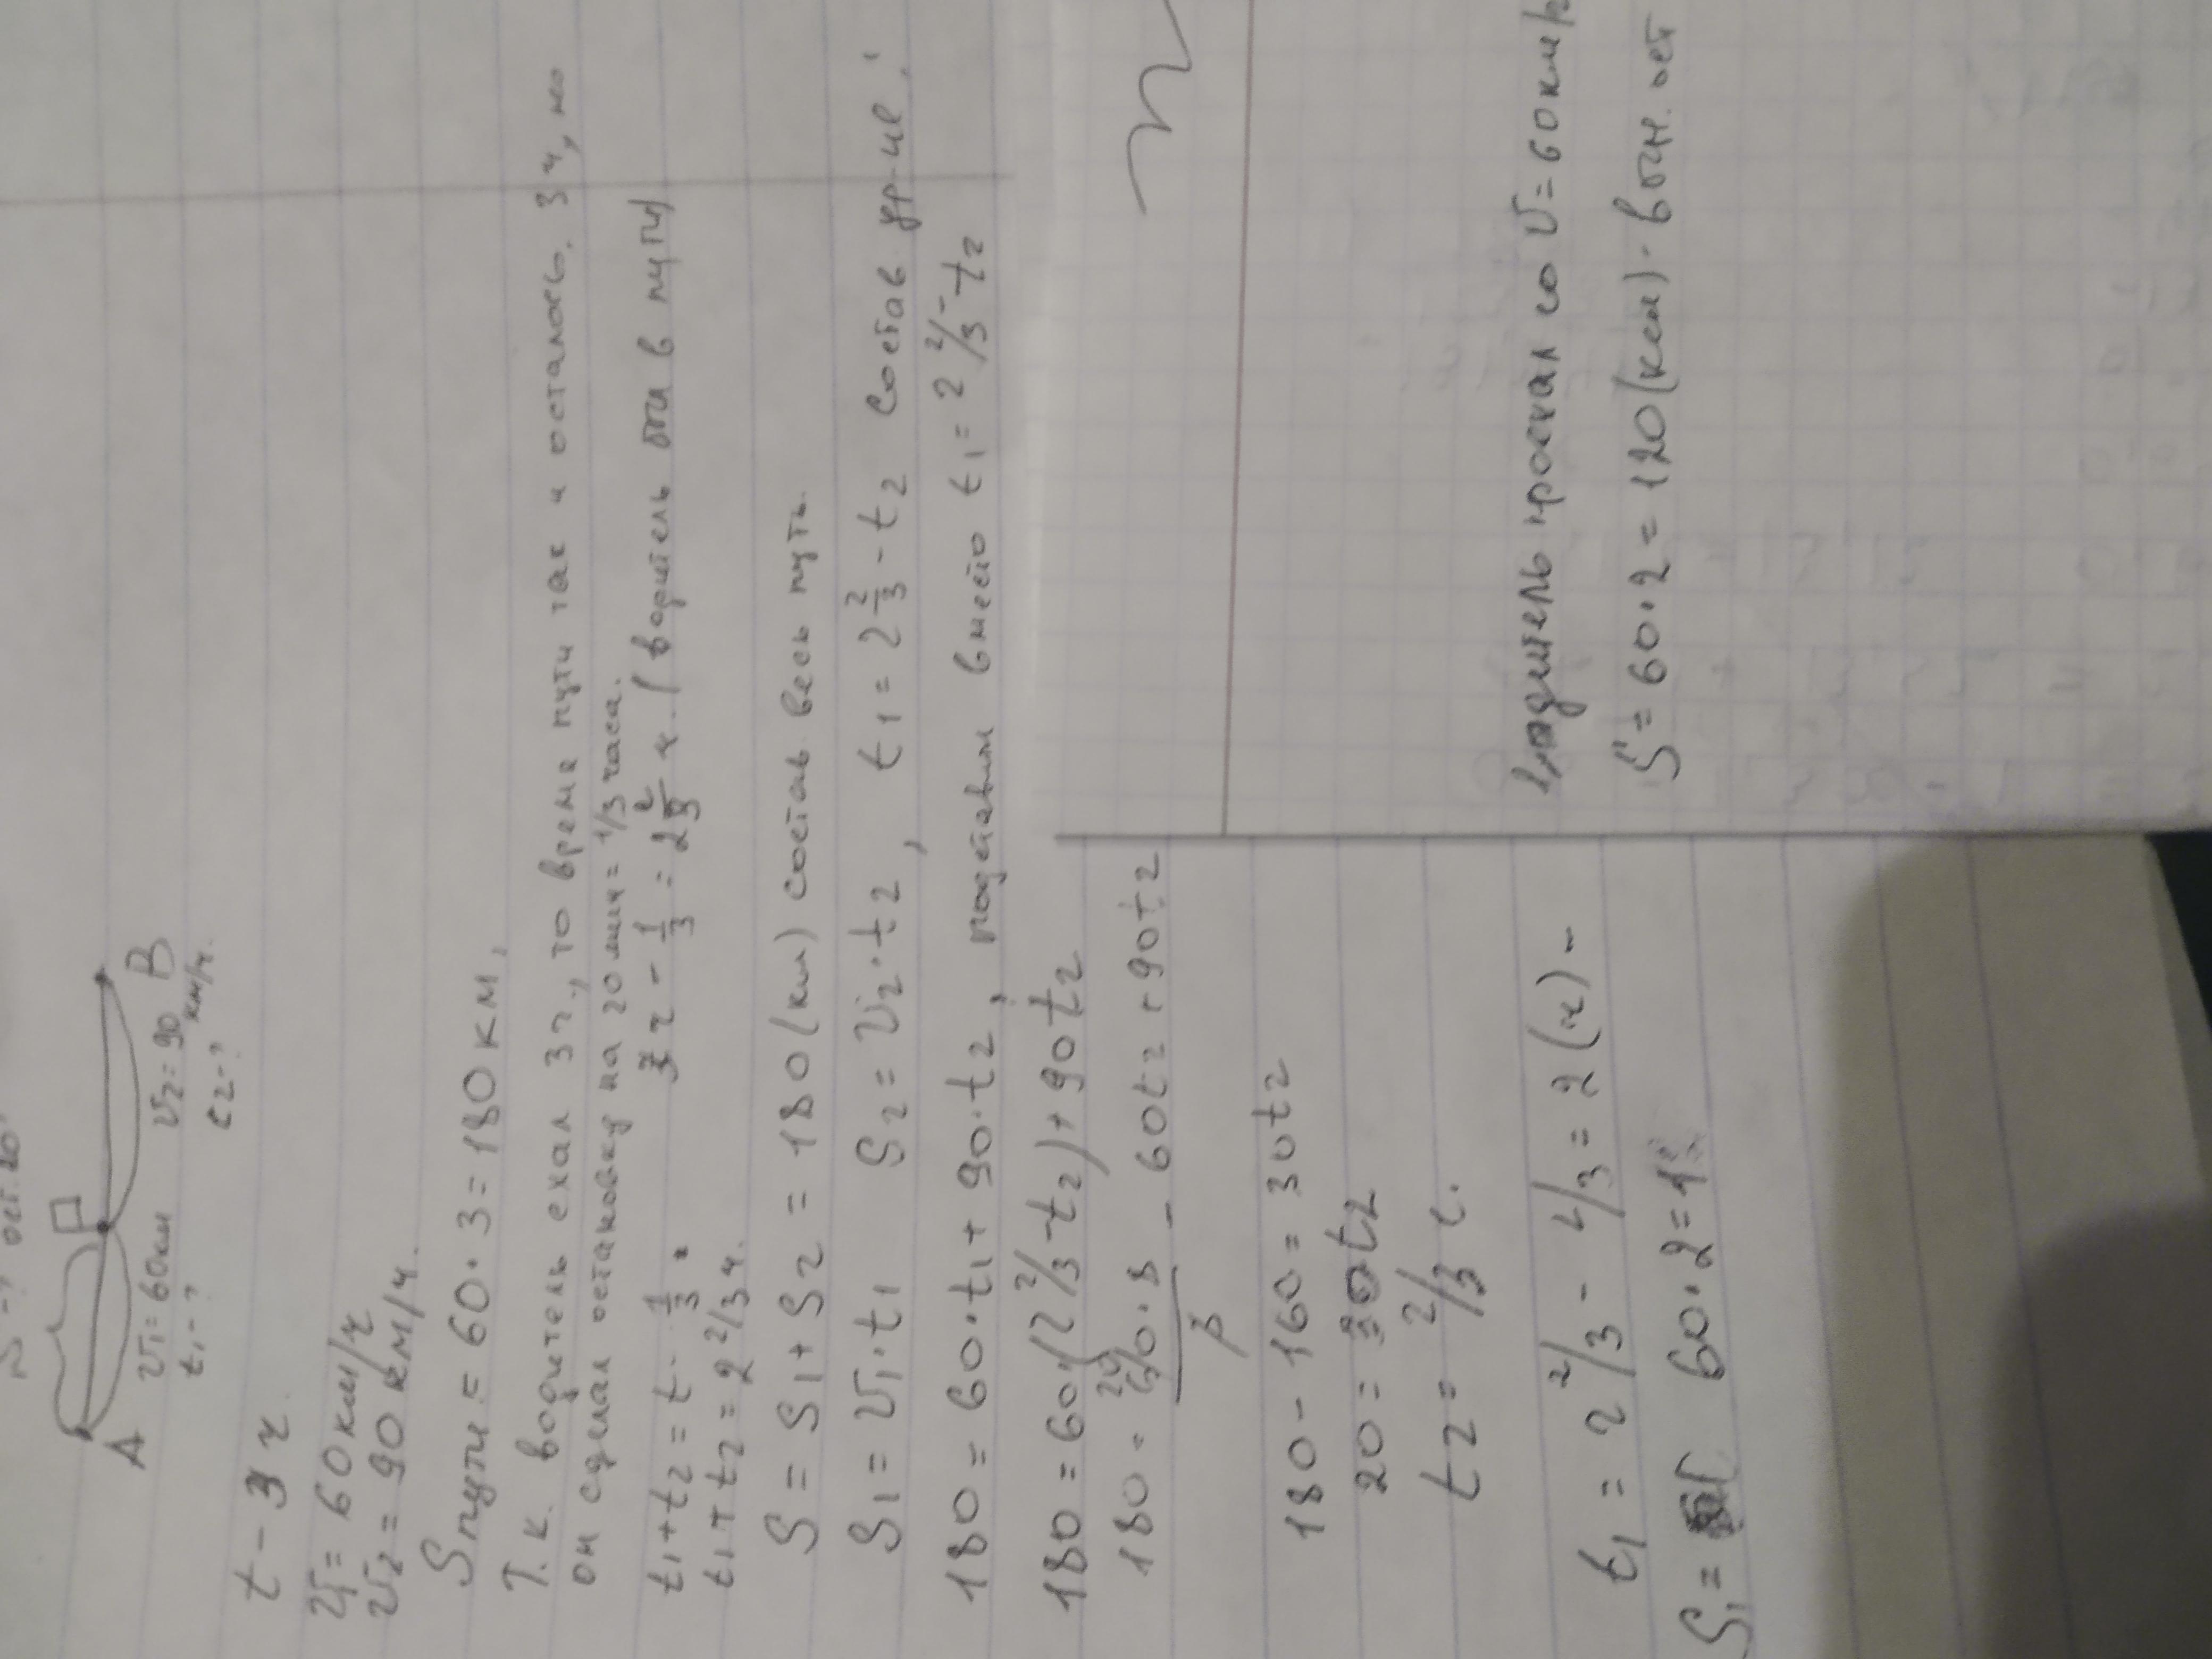 A
B
V₁ = 60км
t₁ - ?
V₂ = 90 км/ч.
t₂ - ?
t - 3 ч.
V₁ = 60 км/ч
V₂ = 90 км/ч.
Sпути = 60 · 3 = 180 км,
Т.к. водитель ехал 3ч., то время пути так и осталось. 3 ч, но
он сделал остановку на 20 мин = 1/3 часа.
t₁ + t₂ = t - 1/3
3 ч - 1/3 = 2 2/3 ч. (водитель в пути)
t₁ + t₂ = 2 2/3 ч.
S = S₁ + S₂ = 180 (км) состав весь путь.
S₁ = V₁ · t₁ S₂ = V₂ · t₂ , t₁ = 2 2/3 - t₂ Состав ур-ие
180 = 60 · t₁ + 90 · t₂ , подставим вместо t₁ = 2 2/3 - t₂
180 = 60 · (2 2/3 - t₂) + 90t₂
180 = 60 · 8/3 - 60t₂ + 90t₂
20
180 - 160 = 30t₂
20 = 30t₂
t₂ = 2/3 ч.
t₁ = 2 2/3 - 2/3 = 2 (ч) -
S₁ = 60 · 2 = 1
Водитель проехал со V = 60 км/
S = 60 · 2 = 120 (км) -